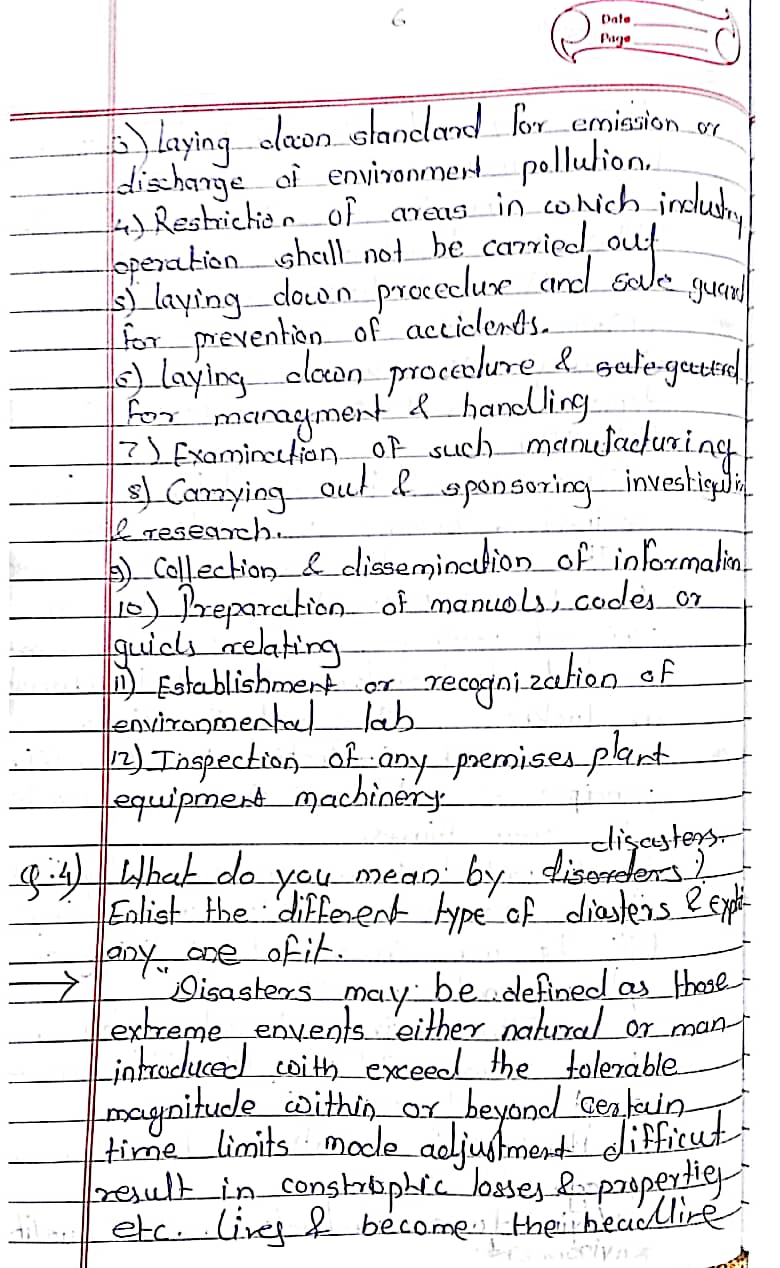 6
Date
Page
3) laying down standard for emission or
discharge of environment pollution.
4) Restriction of areas in which industry
operation shall not be carried out
5) laying down procedure and safe guard
for prevention of accidents.
6) laying down procedure & safe-gauard
for managment & handling
7) Examination of such manufacturing
8) Carrying out & sponsoring
& research.
9) Collection & dissemination of information
10) Preparation of manuols, codes or
guids relating
11) Establishment or recognization of
environmental lab
12) Inspection of any premises plant
equipment machinery.
disasters.
Q.4) What do you mean by disorders?
Enlist the different type of diasters &
any one of it.
→ "Disasters may be defined as those
extreme envents either natural or man
introduced with exceed the tolerable
magnitude within or beyond certain
time limits mode adjustment difficut
result in constrophic losses & properties
etc. lives & become the headline